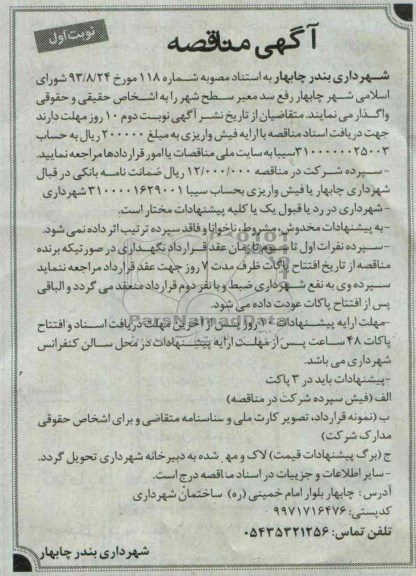 نوبت اول
آگهی مناقصه
شهرداری بندر چابهار به استناد مصوبه شماره ۱۱۸ مورخ ۹۳/۸/۲۴ شورای
اسلامی شهر چابهار رفع سد معبر سطح شهر را به اشخاص حقیقی و حقوقی
واگذار می نمایند. متقاضیان از تاریخ نشر آگهی نوبت دوم ۱۰ روز مهلت دارند
جهت دریافت اسناد مناقصه با ارایه فیش واریزی به مبلغ ۲۰۰۰۰۰ ریال به حساب
۳۱۰۰۰۰۰۰۲۵۰۰۳ سیبا به سایت ملی مناقصات یا امور قراردادها مراجعه نمایید.
-سپرده شرکت در مناقصه ۱۲/۰۰۰/۰۰۰ ریال ضمانت نامه بانکی در قبال
شهرداری چابهار یا فیش واریزی بحساب سیبا ۳۱۰۰۰۰۱۶۲۹۰۰۱ شهرداری
-شهرداری در رد یا قبول یک یا کلیه پیشنهادات مختار است.
-به پیشنهادات مخدوش، مشروط، ناخوانا و فاقد سپرده ترتیب اثر داده نمی شود.
-سپرده نفرات اول تا سوم تا زمان عقد قرارداد نگهداری در صورتیکه برنده
مناقصه از تاریخ افتتاح پاکات ظرف مدت ۷ روز جهت عقد قرارداد مراجعه ننماید
سپرده وی به نفع شهرداری ضبط و با نفر دوم قرارداد منعقد می گردد و الباقی
پس از افتتاح پاکات عودت داده می شود.
-مهلت ارایه پیشنهادات ۱۰ روز پس از آخرین مهلت دریافت اسناد و افتتاح
پاکات ۴۸ ساعت پس از مهلت ارایه پیشنهادات در محل سالن کنفرانس
شهرداری می باشد.
-پیشنهادات باید در ۳ پاکت
الف (فیش سپرده شرکت در مناقصه)
ب (نمونه قرارداد، تصویر کارت ملی و شناسنامه متقاضی و برای اشخاص حقوقی
مدارک شرکت)
ج (برگ پیشنهادات قیمت) لاک و مهر شده به دبیرخانه شهرداری تحویل گردد.
-سایر اطلاعات و جزییات در اسناد مناقصه درج است.
آدرس: چابهار بلوار امام خمینی (ره) ساختمان شهرداری
کدپستی: ۹۹۷۱۷۱۶۴۷۶
تلفن تماس: ۰۵۴۳۵۳۲۱۲۵۶
شهرداری بندر چابهار
ParsNamadData